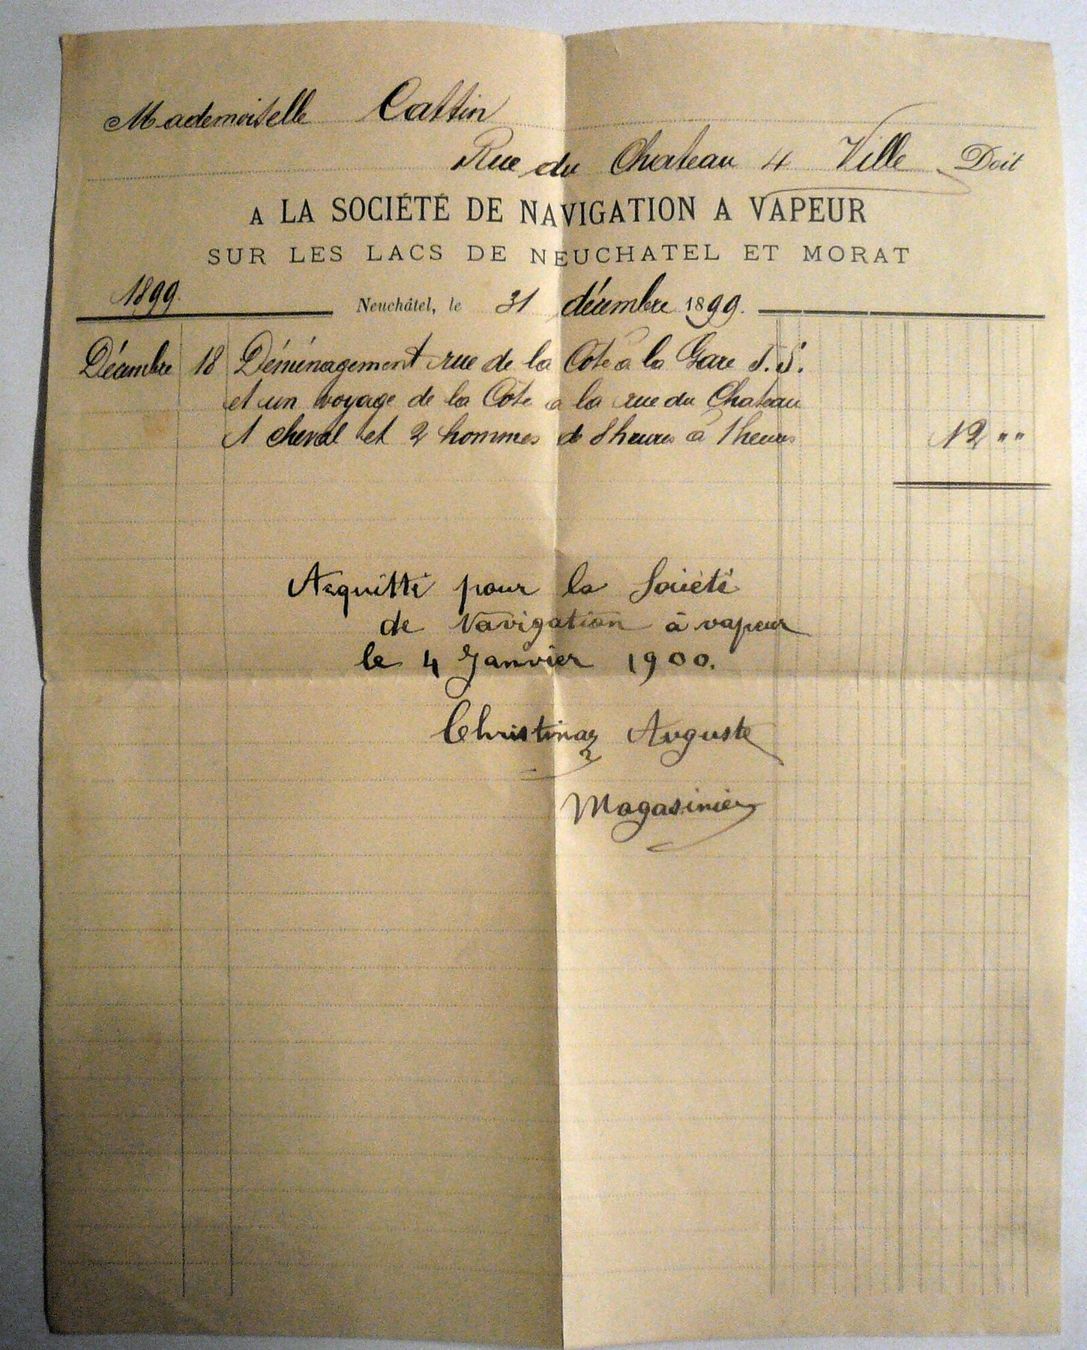 Mademoiselle Cattin
Rue du Chateau 4 Ville Doit
A LA SOCIÉTÉ DE NAVIGATION A VAPEUR
SUR LES LACS DE NEUCHATEL ET MORAT
1899. Neuchâtel, le 31 décembre 1899.
Décembre 18 Déménagement rue de la Côte à la Gare J. S.
et un voyage de la Côte à la rue du Chateau
1 cheval et 2 hommes de 8 heures à 1 heures 12 " "
Acquitté pour la Société
de Navigation à vapeur
le 4 Janvier 1900.
Christinaz Auguste
Magasinier